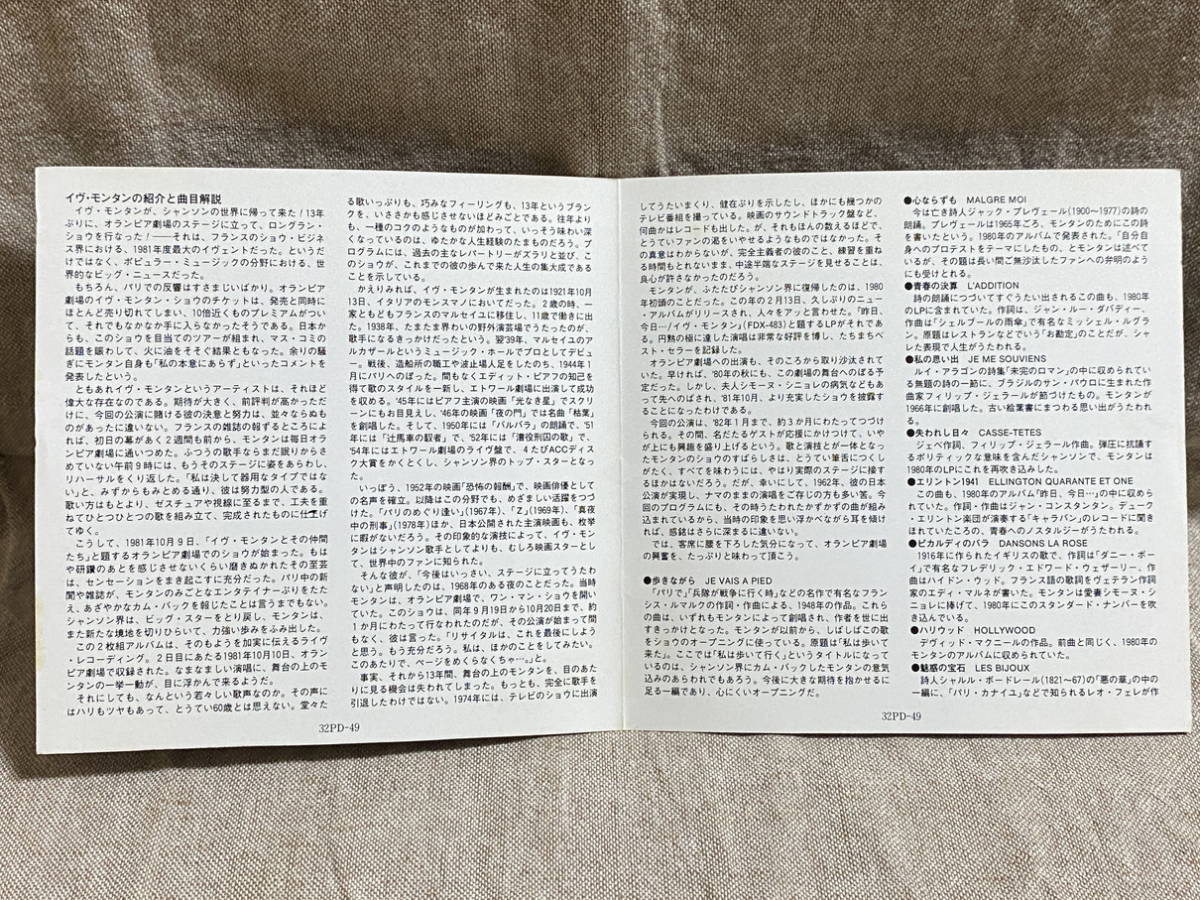 イヴ・モンタンの紹介と曲目解説
　イヴ・モンタンが、シャンソンの世界に帰って来た！13年
ぶりに、オランピア劇場のステージに立って、ロングラン・
ショウを行なった！──それは、フランスのショウ・ビジネ
ス界における、1981年度最大のイヴェントだった。というだ
けではなく、ポピュラー・ミュージックの分野における、世
界的なビッグ・ニュースだった。
　もちろん、パリでの反響はすさまじいばかり。オランピア
劇場のイヴ・モンタン・ショウのチケットは、発売と同時に
ほとんど売り切れてしまい、10倍近くものプレミアムがつい
て、それでもなかなか手に入らなかったそうである。日本か
らも、このショウを目当てのツアーが組まれ、マス・コミの
話題を賑わして、火に油をそそぐ結果ともなった。余りの騒
ぎにモンタン自身も「私の本意にあらず」といったコメントを
発表したという。
　ともあれイヴ・モンタンというアーティストは、それほど
偉大な存在なのである。期待が大きく、前評判が高かっただ
けに、今回の公演に賭ける彼の決意と努力は、並々ならぬも
のがあったに違いない。フランスの雑誌の報ずるところによ
れば、初日の幕があく2週間も前から、モンタンは毎日オラ
ンピア劇場に通いつめた。ふつうの歌手ならまだ眠りからさ
めていない午前9時には、もうそのステージに姿をあらわし、
リハーサルをくり返した。「私は決して器用なタイプではな
い」と、みずからもみとめる通り、彼は努力型の人である。
歌い方はもとより、ゼスチュアや視線に至るまで、工夫を重
ねてひとつひとつの歌を組み立て、完成されたものに仕上げ
てゆく。
　こうして、1981年10月9日、「イヴ・モンタンとその仲間
たち」と題するオランピア劇場でのショウが始まった。もは
や研鑽のあとを感じさせないくらい磨きぬかれたその至芸
は、センセーションをまき起こすに充分だった。パリ中の新
聞や雑誌が、モンタンのみごとなエンタテイナーぶりをたた
え、あざやかなカム・バックを報じたことは言うまでもない。
シャンソン界は、ビッグ・スターをとり戻し、モンタンは、
また新たな境地を切りひらいて、力強い歩みをふみ出した。
　この2枚組アルバムは、そのもようを如実に伝えるライヴ
・レコーディング。2日目にあたる1981年10月10日、オラン
ピア劇場で収録された。なまなましい演唱に、舞台の上のモ
ンタンの一挙一動が、目に浮かんで来るようだ。
　それにしても、なんという若々しい歌声なのか。その声に
はハリもツヤもあって、とうてい60歳とは思えない。堂々た
る歌いっぷりも、巧みなフィーリングも、13年というブラン
クを、いささかも感じさせないほどみごとである。往年より
も、一種のコクのようなものが加わって、いっそう味わい深
くなっているのは、ゆたかな人生経験のたまものだろう。プ
ログラムには、過去の主なレパートリーがズラリと並び、こ
のショウが、これまでの彼の歩んで来た人生の集大成である
ことを示している。
　かえりみれば、イヴ・モンタンが生まれたのは1921年10月
13日、イタリアのモンスマノにおいてだった。2歳の時、一
家ともどもフランスのマルセイユに移住し、11歳で働きに出
た。1938年、たまたま界わいの野外演芸場でうたったのが、
歌手になるきっかけだったという。翌'39年、マルセイユのア
ルカザールというミュージック・ホールでプロとしてデビュ
ー。戦後、造船所の職工や波止場人足をしたのち、1944年1
月にパリへのぼった。間もなくエディット・ピアフの知己を
得て歌のスタイルを一新し、エトワール劇場に出演して成功
を収める。'45年にはピアフ主演の映画「光なき星」でスクリ
ーンにもお目見えし、'46年の映画「夜の門」では名曲「枯葉」
を創唱した。そして、1950年には「バルバラ」の朗読で、'51
年には「辻馬車の馭者」で、'52年には「漕役刑囚の歌」で、
'54年にはエトワール劇場のライヴ盤で、4たびACCディス
ク大賞をかくとくし、シャンソン界のトップ・スターとなっ
た。
　いっぽう、1952年の映画「恐怖の報酬」で、映画俳優として
の名声を確立。以降はこの分野でも、めざましい活躍をつづ
けた。「パリのめぐり逢い」(1967年)、「Z」(1969年)、「真夜
中の刑事」(1978年)ほか、日本公開された主演映画も、枚挙
に暇がないだろう。その印象的な演技によって、イヴ・モン
タンはシャンソン歌手としてよりも、むしろ映画スターとし
て、世界中のファンに知られた。
　そんな彼が、「今後はいっさい、ステージに立ってうたわ
ない」と声明したのは、1968年のある夜のことだった。当時
モンタンは、オランピア劇場で、ワン・マン・ショウを開い
ていた。このショウは、同年9月19日から10月20日まで、約
1か月にわたって行なわれたのだが、その公演が始まって間
もなく、彼は言った。「リサイタルは、これを最後にしよう
と思う。もう充分だろう。私は、ほかのことをしてみたい。
このあたりで、ページをめくらなくちゃ…」と。
　事実、それから13年間、舞台の上のモンタンを、目のあた
りに見る機会は失われてしまった。もっとも、完全に歌手を
引退したわけではない。1974年には、テレビのショウに出演
32PD-49
してうたいまくり、健在ぶりを示したし、ほかにも幾つかの
テレビ番組を撮っている。映画のサウンドトラック盤など、
何曲かはレコードも出した。が、それもほんの数えるほどで、
とうていファンの渇をいやせるようなものではなかった。そ
の真意はわからないが、完全主義者の彼のこと、練習を重ね
る時間もとれないまま、中途半端なステージを見せることは、
良心が許さなかったのだろう。
　モンタンが、ふたたびシャンソン界に復帰したのは、1980
年初頭のことだった。この年の2月13日、久しぶりのニュー
・アルバムがリリースされ、人々をアッと言わせた。「昨日、
今日…/イヴ・モンタン」(FDX-483)と題するLPがそれであ
る。円熟の極に達した演唱は非常な好評を博し、たちまちベ
スト・セラーを記録した。
　オランピア劇場への出演も、そのころから取り沙汰されて
いた。早ければ、'80年の秋にも、この劇場の舞台へのぼる予
定だった。しかし、夫人シモーヌ・シニョレの病気などもあ
って先へのばされ、'81年10月、より充実したショウを披露す
ることになったわけである。
　今回の公演は、'82年1月まで、約3か月にわたってつづけ
られる。その間、名だたるゲストが応援にかけつけて、いや
が上にも興趣を盛り上げるという。歌と演技とが一体となっ
たモンタンのショウのすばらしさは、とうてい筆舌につくし
がたく、すべてを味わうには、やはり実際のステージに接す
るほかはないだろう。だが、幸いにして、1962年、彼の日本
公演が実現し、ナマのままの演唱をご存じの方も多い筈。今
回のプログラムにも、その時うたわれたかずかずの曲が組み
込まれているから、当時の印象を思い浮かべながら耳を傾け
れば、感銘はさらに深まるに違いない。
　では、客席に腰を下ろした気分になって、オランピア劇場
の興奮を、たっぷりと味わって頂こう。
●歩きながら　JE VAIS A PIED
　「パリで」「兵隊が戦争に行く時」などの名作で有名なフラン
シス・ルマルクの作詞・作曲による、1948年の作品。これら
の曲は、いずれもモンタンによって創唱され、作者を世に出
すきっかけとなった。モンタンが以前から、しばしばこの歌
をショウのオープニングに使っている。原題は「私は歩いて
来た」。ここでは「私は歩いて行く」というタイトルになって
いるのは、シャンソン界にカム・バックしたモンタンの意気
込みのあらわれでもあろう。今後に大きな期待を抱かせるに
足る一編であり、心にくいオープニングだ。
●心ならずも　MALGRE MOI
　今は亡き詩人ジャック・プレヴェール(1900〜1977)の詩の
朗誦。プレヴェールは1965年ごろ、モンタンのためにこの詩
を書いたという。1980年のアルバムで発表された。「自分自
身へのプロテストをテーマにしたもの」、とモンタンは述べて
いるが、その題は長い間ご無沙汰したファンへの弁明のよう
にも受けとれる。
●青春の決算　L'ADDITION
　詩の朗誦につづいてすぐうたい出されるこの曲も、1980年
のLPに含まれていた。作詞は、ジャン・ルー・ダバディー、
作曲は「シェルブールの雨傘」で有名なミッシェル・ルグラ
ン。原題はレストランなどでいう「お勘定」のことだが、シャ
レた表現で人生がうたわれる。
●私の思い出　JE ME SOUVIENS
　ルイ・アラゴンの詩集「未完のロマン」の中に収められてい
る無題の詩の一節に、ブラジルのサン・パウロに生まれた作
曲家フィリップ・ジェラールが節づけたもの。モンタンが
1966年に創唱した。古い絵葉書にまつわる思い出がうたわれ
る。
●失われし日々　CASSE-TETES
　ジェベ作詞、フィリップ・ジェラール作曲。弾圧に抗議す
るポリティックな意味を含んだシャンソンで、モンタンは
1980年のLPにこれを再吹き込みした。
●エリントン1941　ELLINGTON QUARANTE ET ONE
　この曲も、1980年のアルバム「昨日、今日…」の中に収めら
れていた。作詞・作曲はジャン・コンスタンタン。デューク
・エリントン楽団が演奏する「キャラバン」のレコードに聞き
ほれていたころの、青春へのノスタルジーがうたわれる。
●ピカルディのバラ　DANSONS LA ROSE
　1916年に作られたイギリスの歌で、作詞は「ダニー・ボー
イ」で有名なフレデリック・エドワード・ウェザーリー、作
曲はハイドン・ウッド。フランス語の歌詞をヴェテラン作詞
家のエディ・マルネが書いた。モンタンは愛妻シモーヌ・シ
ニョレに捧げて、1980年にこのスタンダード・ナンバーを吹
き込んでいる。
●ハリウッド　HOLLYWOOD
　デヴィッド・マクニールの作品。前曲と同じく、1980年の
モンタンのアルバムに収められていた。
●魅惑の宝石　LES BIJOUX
　詩人シャルル・ボードレール(1821〜67)の「悪の華」の中の
一編に、「パリ・カナイユ」などで知られるレオ・フェレが作
32PD-49